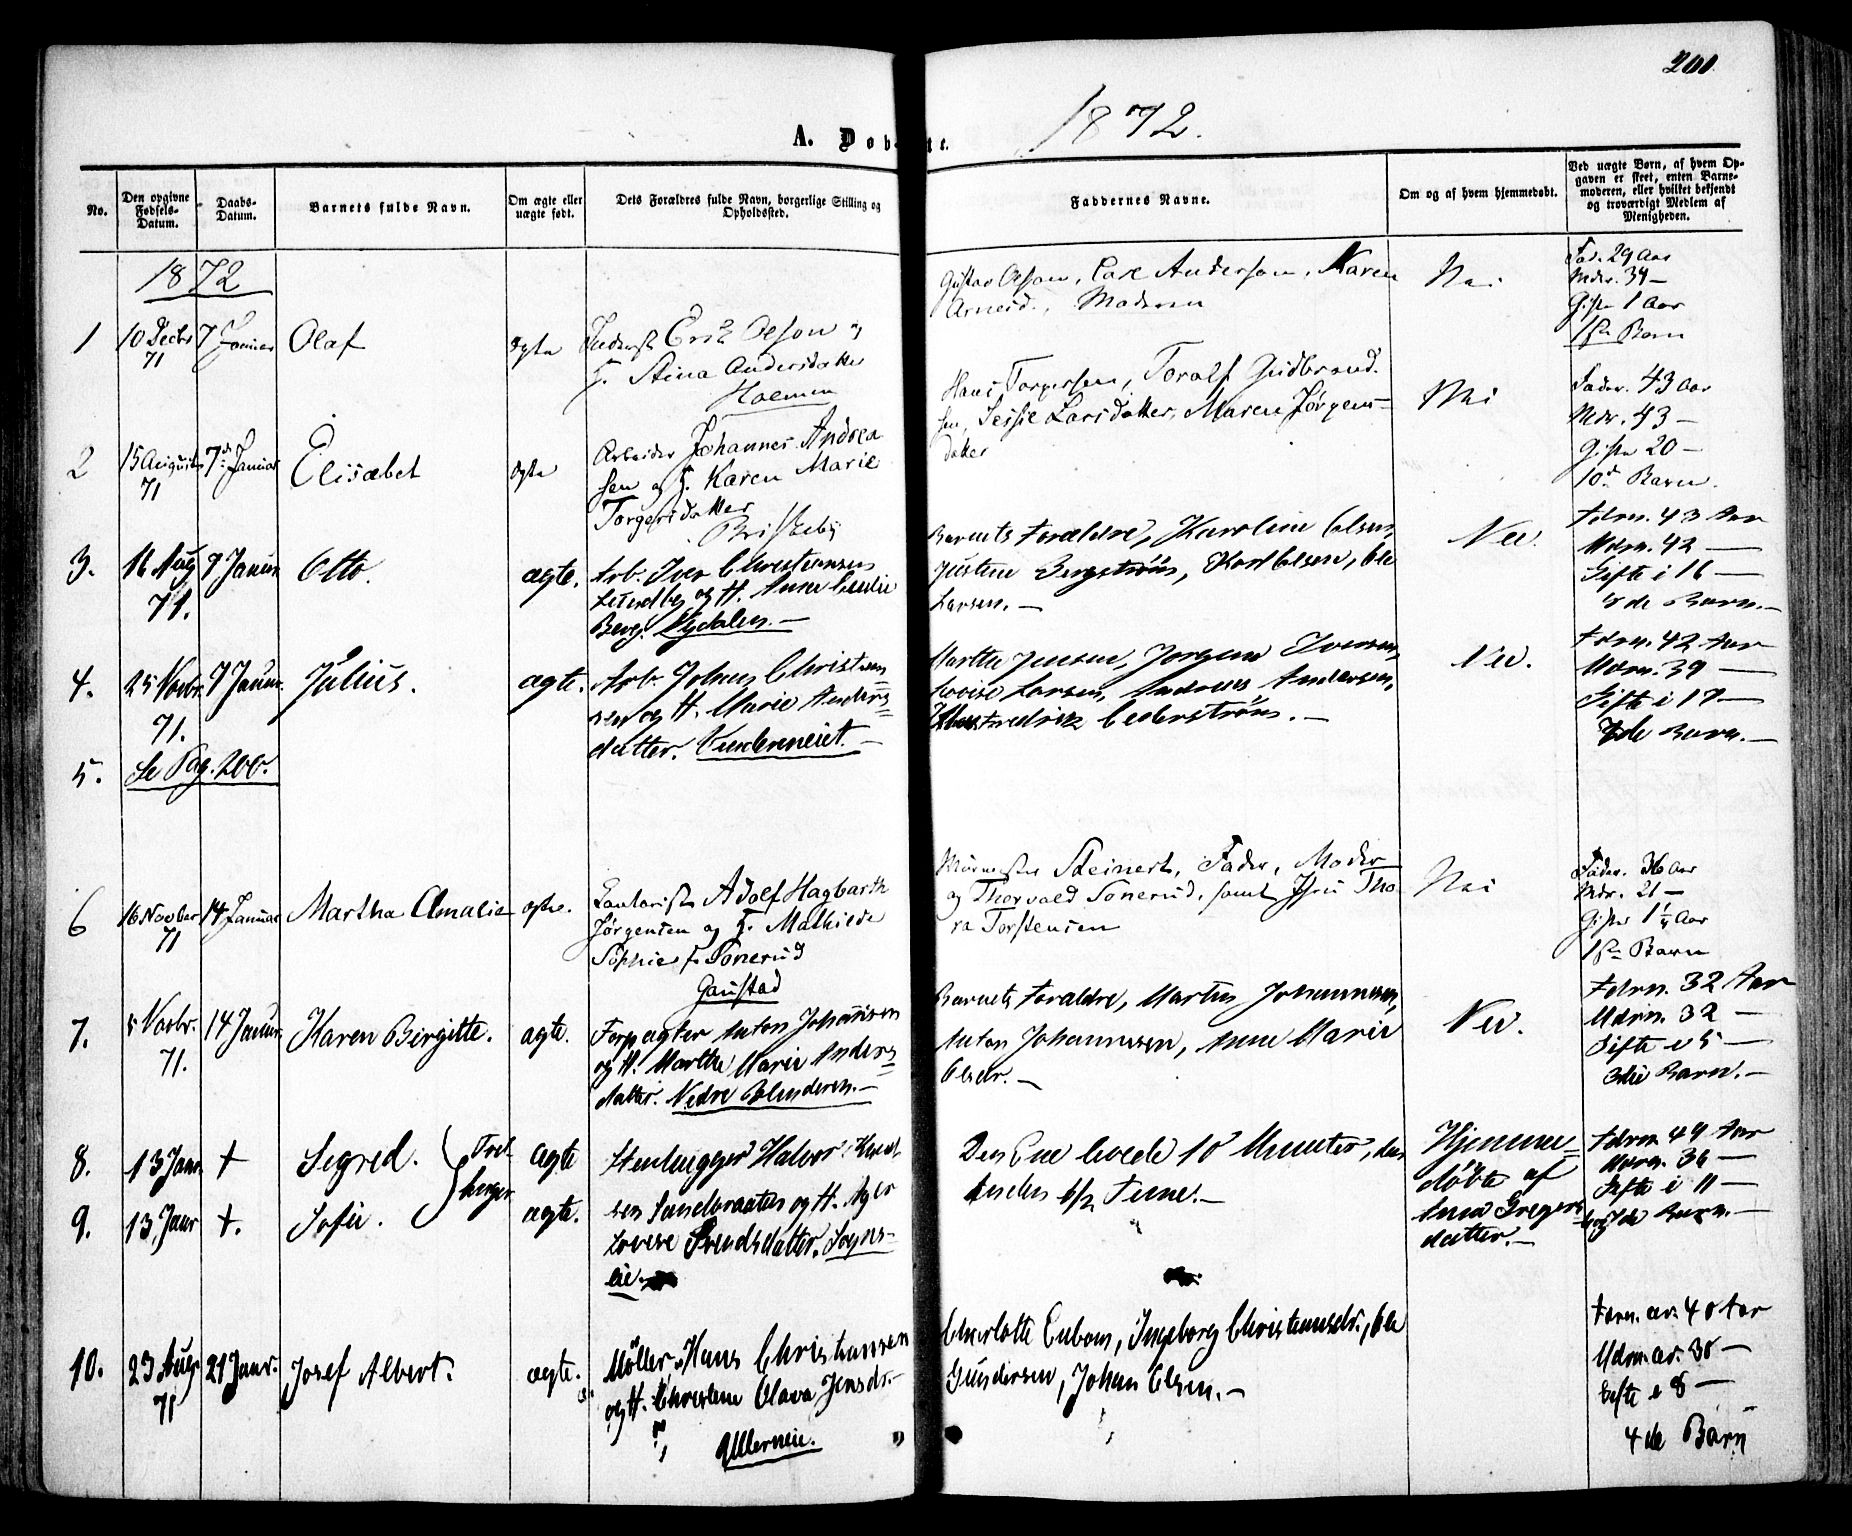 200
1872.
A. Døbte.
No.
Den opgivne Fødsels-Datum.
Daabs-Datum.
Barnets fulde Navn.
Om ægte eller uægte født.
Dets Forældres fulde Navn, borgerlige Stilling og Opholdssted.
Faddernes Navne.
Om og af hvem hjemmedøbt.
Ved uægte Børn, af hvem Opgaven er skeet, enten Barnemoderen, eller hvilket bekjendt og troværdigt Medlem af Menigheden.
1872
1
10 Decbr 71
7 Januar
Olaf
ægte
Inderst Erik Olson og
H. Stina Andersdatter
Holmen
Gustav Olson, Carl Anderson, Karen
Arnesd., Moderen
Nei
Fad. 29 Aar
Mdr. 34 –
Gifte 1 Aar
1ste Barn
2
15 August 71
7de Januar
Elisabet
ægte
Arbeider Johannes Andrea
sen og H. Karen Marie
Torgersdatter
Briskeby
Hans Torgersen, Toralf Gudbrand
sen, Sessie Larsdatter, Maren Jørgens-
datter
Nei
Fader. 43 Aar
Mdr. 43 –
Gifte 20 –
10de Barn.
3.
16 Aug 71.
7 Januar
Otto.
ægte.
Arb. Iver Christiansen
Lundby og H. Anne
Berg. Nydalen. –
Barnets Forældre, Karoline Olsen,
Justine Bergstrøm, Karl Olsen, Ole
Larsen. –
Nei.
Fdrn. 43 Aar
Mdrn. 42 –
Gifte i 16 –
8de Barn. –
4.
25 Novbr. 71.
7 Januar.
Julius.
ægte.
Arb. Johus Christian
sen og H. Marie Anders=
datter. –
Marthe Jensen, Jørgine Iversen,
Lovise Larsen, Andreas Andersen,
Fredrik Cederstrøm. –
Nei.
Fdrn. 42 Aar
Mdrn. 39 –
Gifte i 17 –
7de Barn. –
5.
Se Pag. 200.
6
16 Novber 71
14 Januar
Martha Amalie
ægte.
Adolf Hagbarth
Jørgensen og H. Mathilde
Sophie f. Sonerud
Gaustad
Steinert, Fader, Moder
og Thorvald Sonerud, samt Thora
Torstensen
Nei
Fader. 36 Aar
Mdr. 21 –
Gifte 1 1/4 Aar
1ste Barn
7.
5 Novbr. 71.
14 Januar.
Karen Birgitte.
ægte.
Forpagter Anton Johansen
og H. Marthe Marie Anders=
datter. Nedre Blinderen. –
Barnets Forældre, Martin Johannesen,
Anton Johannesen, Anne Marie
Olsdr. –
Nei.
Fdrn. 32 Aar
Mdrn. 32 –
Gifte i 5 –
3die Barn. –
8.
13 Januar
+
Segred.
ægte
Stenhugger Halvor
9.
13 Januar
+.
Sofie.
Tvillinger
ægte.
sen Sandbraaten og H.
Lovise Svendsdatter. Sogns-
eie.
Den Ene levede 10 Minuter, den
Anden 1/2 Time. –
Hjemme=
døbte af
Anna Gregers
datter. –
Fdrn. 49 Aar
Mdrn. 36 –
Gifte i 11 –
Barn. –
10.
23 Aug 71
21 Januar.
Josef Albert.
ægte.
Møller Hans Christiansen
og H. Olava Jensdr. –
Ullerneie.
Charlotte Enbom, Ingeborg Christiansdr., Ole
Gundersen, Johan Olsen. –
Farn. av. 40 Aar
Mdrn. av. 38 –
Gifte i 8 –
4de Barn